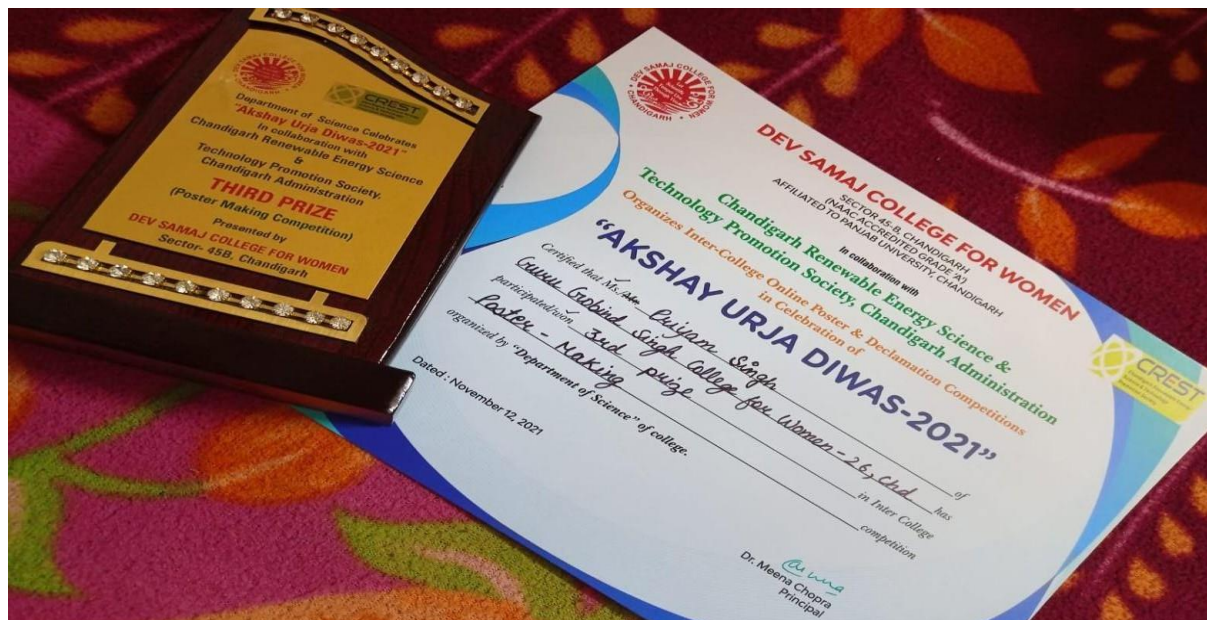 DEV SAMAJ COLLEGE FOR WOMEN
CHANDIGARH
CREST
Department of Science Celebrates
"Akshay Urja Diwas-2021"
In collaboration with
Chandigarh Renewable Energy Science
&
Technology Promotion Society,
Chandigarh Administration
THIRD PRIZE
(Poster Making Competition)
Presented by
DEV SAMAJ COLLEGE FOR WOMEN
Sector- 45B, Chandigarh
DEV SAMAJ COLLEGE FOR WOMEN
CHANDIGARH
DEV SAMAJ COLLEGE FOR WOMEN
SECTOR 45-B, CHANDIGARH
(NAAC ACCREDITED GRADE 'A')
AFFILIATED TO PANJAB UNIVERSITY, CHANDIGARH
In collaboration with
Chandigarh Renewable Energy Science &
Technology Promotion Society, Chandigarh Administration
Organizes Inter-College Online Poster & Declamation Competitions
in Celebration of
"AKSHAY URJA DIWAS-2021"
CREST
Certified that Ms. Priyam Singh of
Guru Gobind Singh College for Women-26, Chd has
participated/won 3rd prize in Inter College
Poster-Making competition
organized by "Department of Science" of college.
Dated : November 12, 2021
Dr. Meena Chopra
Principal